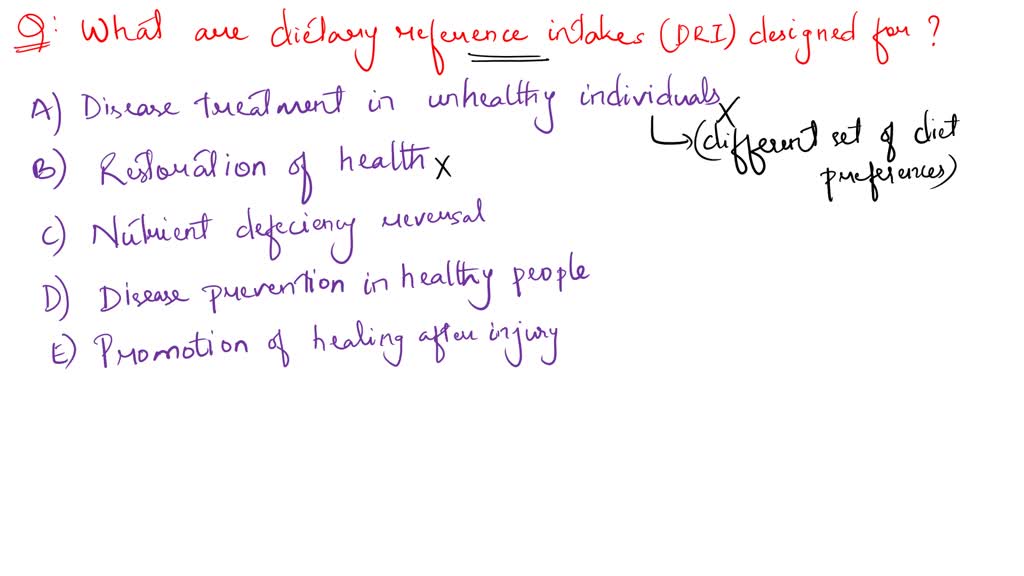 Q: What are dietary reference intakes (DRI) designed for ?
A) Disease treatment in unhealthy individuals X
↳ (different set of diet
preferences)
B) Restoration of health X
C) Nutrient defeciency reversal
D) Disease prevention in healthy people
E) Promotion of healing after injury